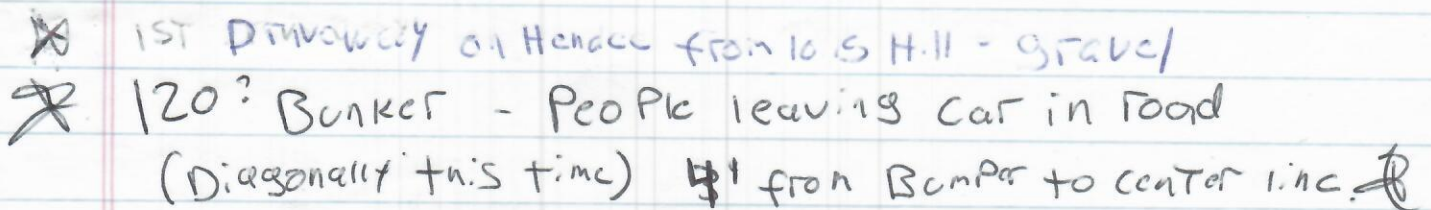 1ST Driveway on Horace from Lois Hill - gravel
120? Bunker - People leaving car in road
(Diagonally this time) 4' from Bumper to center line.